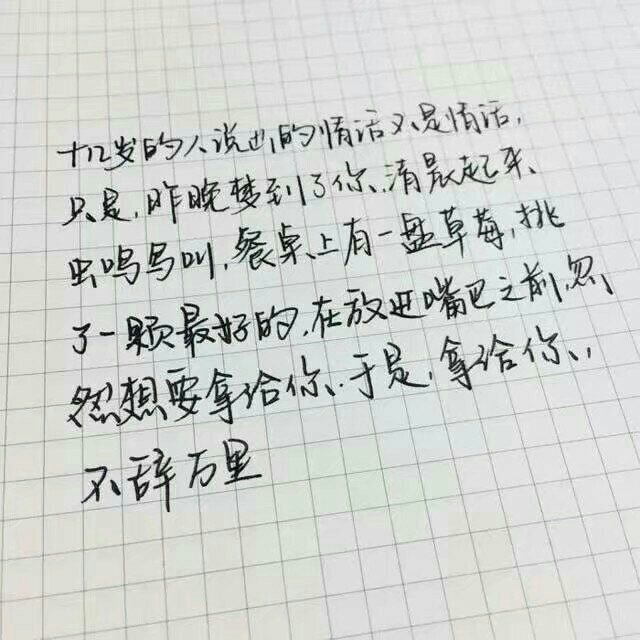 十几岁的人说出的情话不是情话,
只是,昨晚梦到了你、清晨起来、
虫鸣鸟叫,餐桌上有一盘草莓,挑
了一颗最好的,在放进嘴巴之前,忽
然想要拿给你、于是,拿给你,
不辞万里